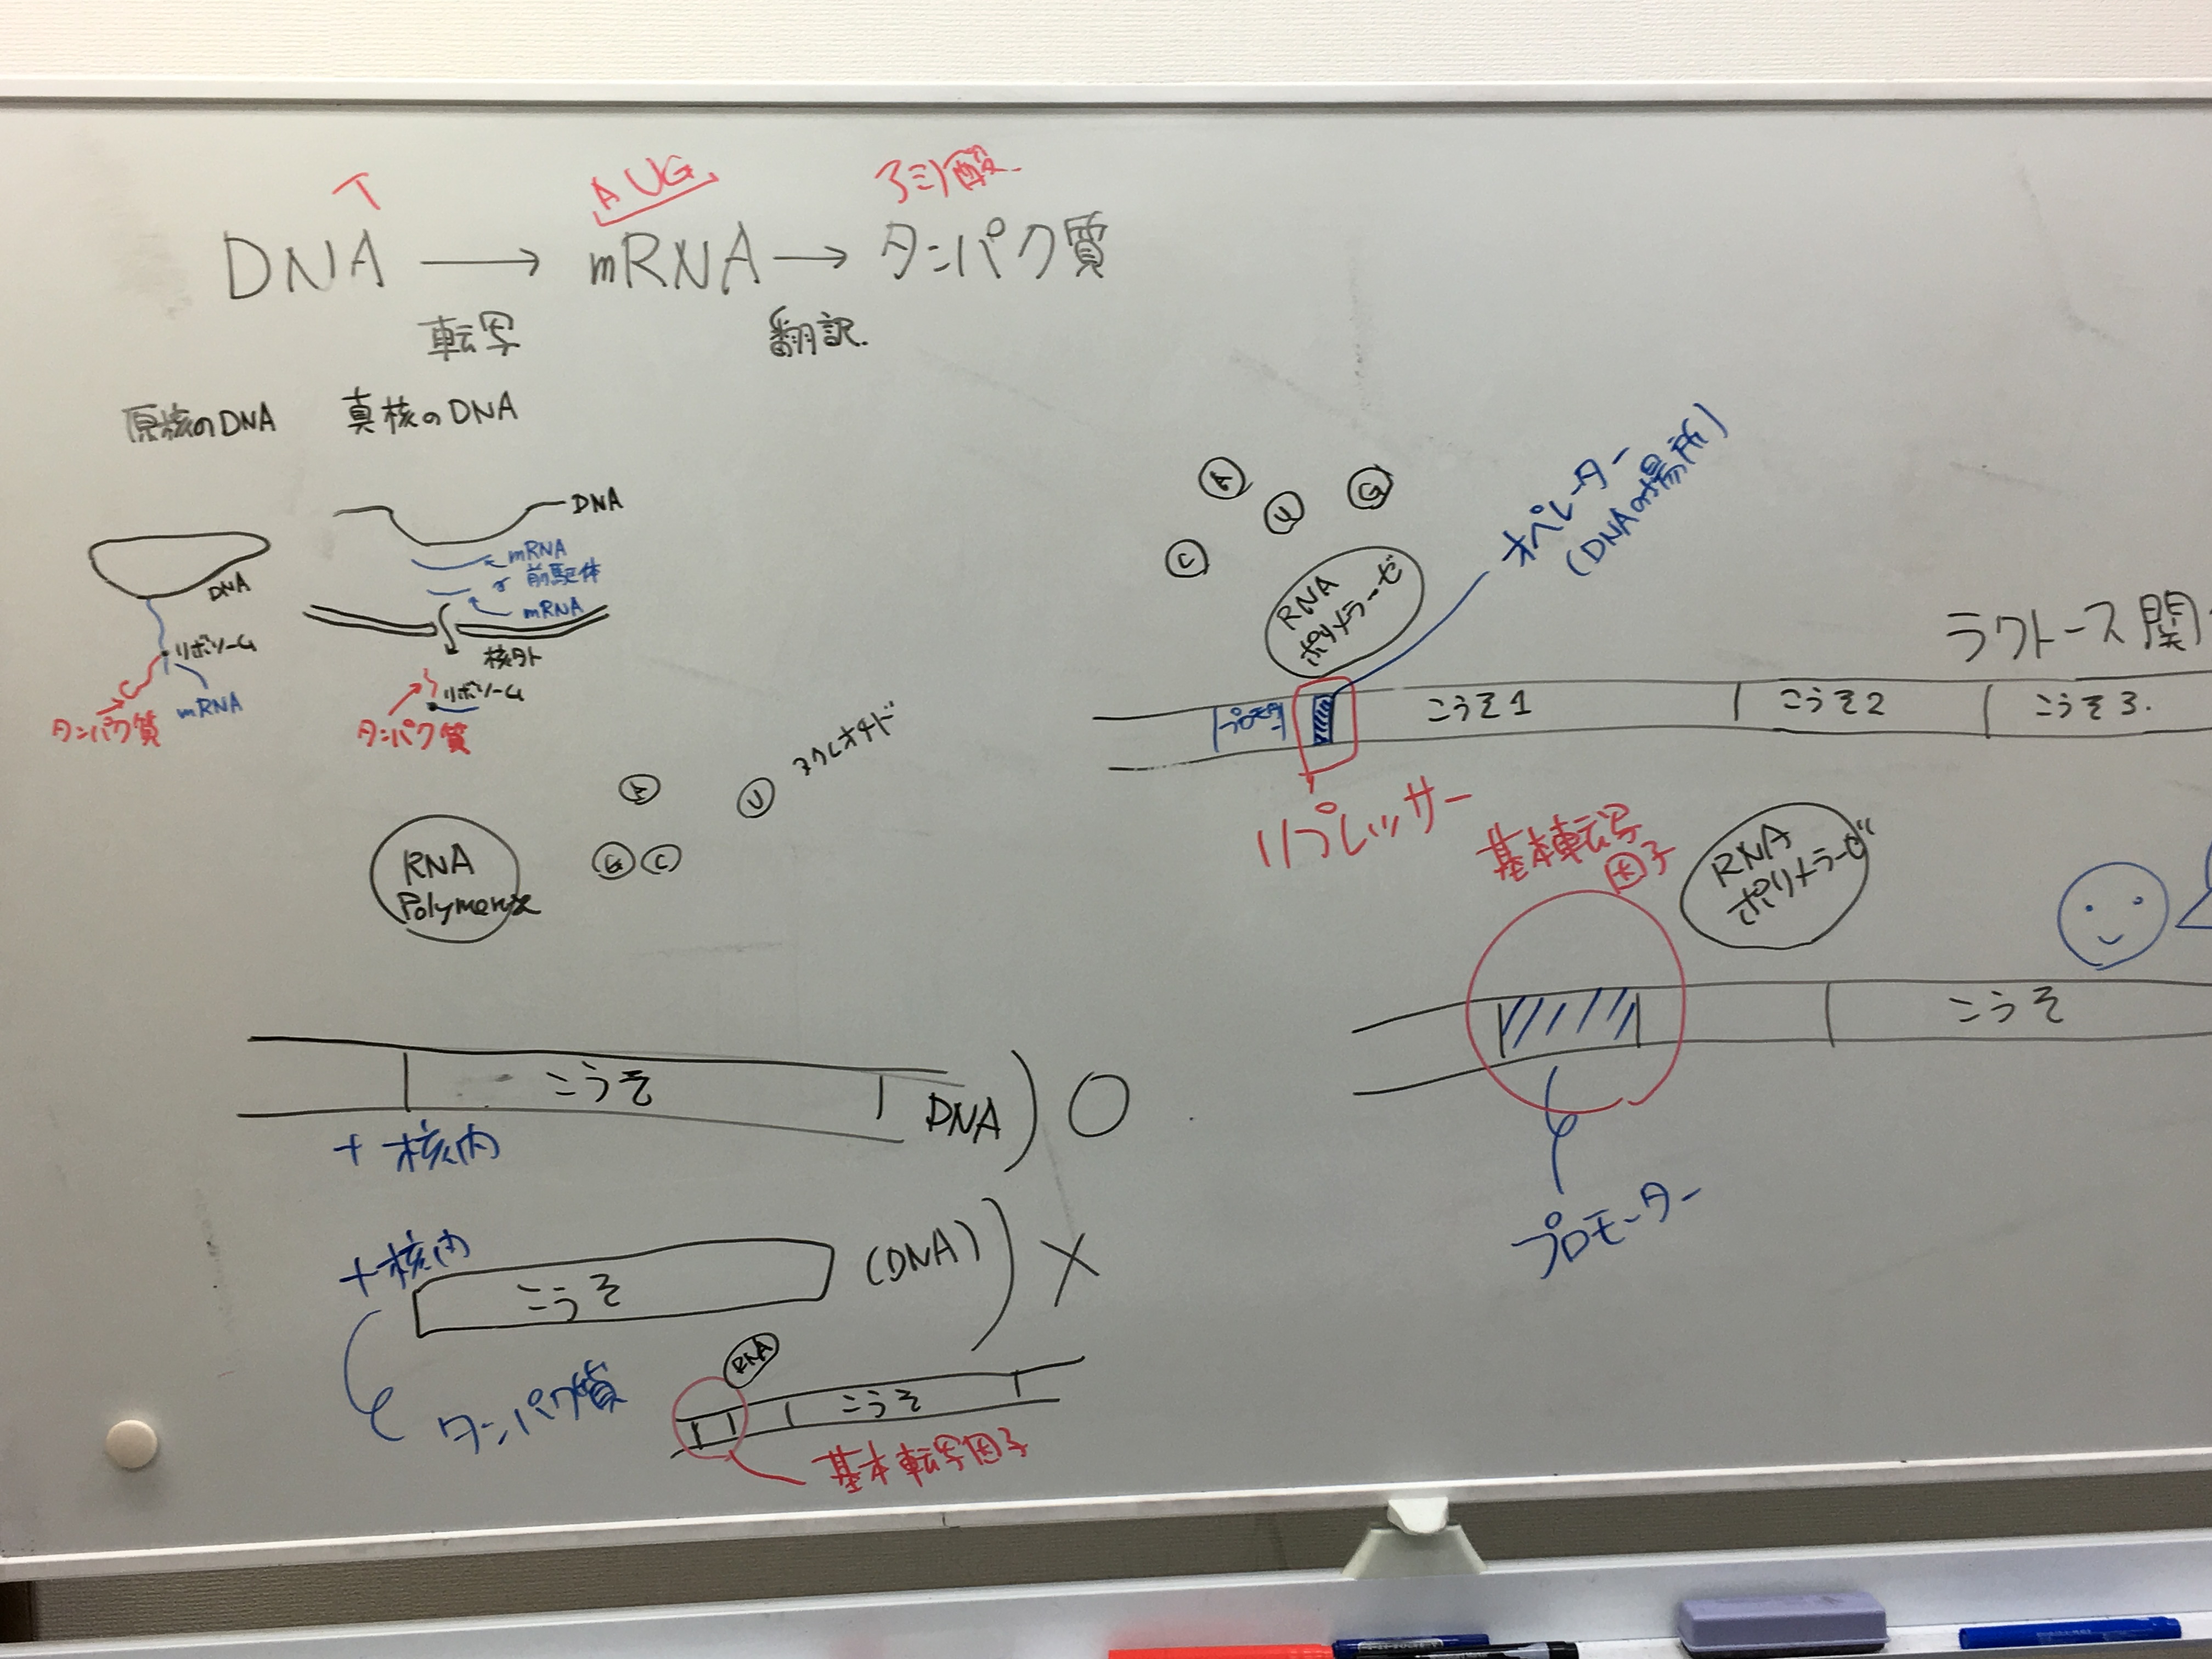 T
AUG
アミノ酸
DNA → mRNA → タンパク質
転写
翻訳.
原核のDNA
真核のDNA
DNA
リボソーム
mRNA
タンパク質
DNA
mRNA
前駆体
mRNA
核外
リボソーム
タンパク質
RNA
Polymerase
A
U
G
C
ヌクレオチド
こうそ
DNA) ○
+ 核内
+核内
こうそ
(DNA)) ×
タンパク質
RNA
こうそ
基本転写因子
A
U
G
C
RNA
ポリメラーゼ
オペレーター
(DNAの場所)
ラクトース関
プロモター
こうそ1
こうそ2
こうそ3.
リプレッサー
基本転写
因子
RNA
ポリメラーゼ
こうそ
プロモーター